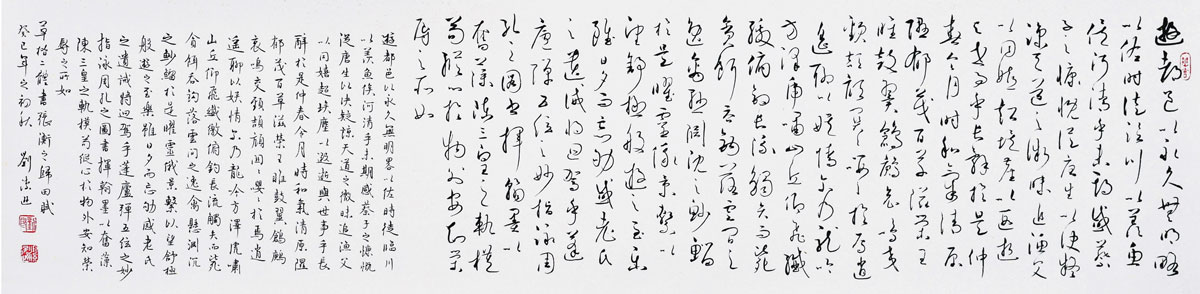 遊都邑以永久無明略
以佐時徒臨川以羨魚
俟河清乎未期感蔡
子之慷慨從唐生以決疑
諒天道之微昧追漁父
以同嬉超埃塵以遐逝
與世事乎長辭於是仲
春令月時和氣清原
隰郁茂百草滋榮王
雎鼓翼鶬鶊哀鳴交
頸頡頏關關嚶嚶於焉逍
遙聊以娛情爾乃龍吟
方澤虎嘯山丘仰飛纖
繳俯釣長流觸矢而斃
貪餌吞鉤落雲間之
逸禽懸淵沉之魦鰡
於是曜靈俄景繫以
望舒極般遊之至樂
雖日夕而忘劬感老氏
之遺誡將迴駕乎蓬
廬彈五弦之妙指詠周
孔之圖書揮翰墨以
奮藻陳三皇之軌模
苟縱心於物外安知榮
辱之所如
遊都邑以永久無明略以佐時徒臨川
以羨魚俟河清乎未期感蔡子之慷慨
從唐生以決疑諒天道之微昧追漁父
以同嬉超埃塵以遐逝與世事乎長
辭於是仲春令月時和氣清原隰
郁茂百草滋榮王雎鼓翼鶬鶊
哀鳴交頸頡頏關關嚶嚶於焉逍
遙聊以娛情爾乃龍吟方澤虎嘯
山丘仰飛纖繳俯釣長流觸矢而斃
貪餌吞鉤落雲間之逸禽懸淵沉
之魦鰡於是曜靈俄景繫以望舒極
般遊之至樂雖日夕而忘劬感老氏
之遺誡將迴駕乎蓬廬彈五弦之妙
指詠周孔之圖書揮翰墨以奮藻
陳三皇之軌模苟縱心於物外安知榮
辱之所如
草楷二體書張衡之歸田賦
癸巳年之初秋 劉